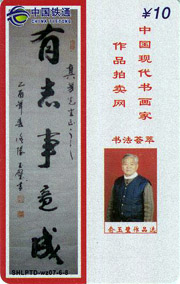 中国铁通
CHINA TIETONG
¥10
中国现代书画家
作品拍卖网
书法荟萃
有志事竟成
俞玉璧作品选
SHLPTD-wz07-6-6